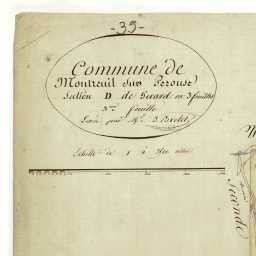 -35-
Commune de
Montreuil sur Perouse
Section D de Gerard en 3 feuilles
3me feuille
Levée par Mr.
Echelle de 1 à
Seconde